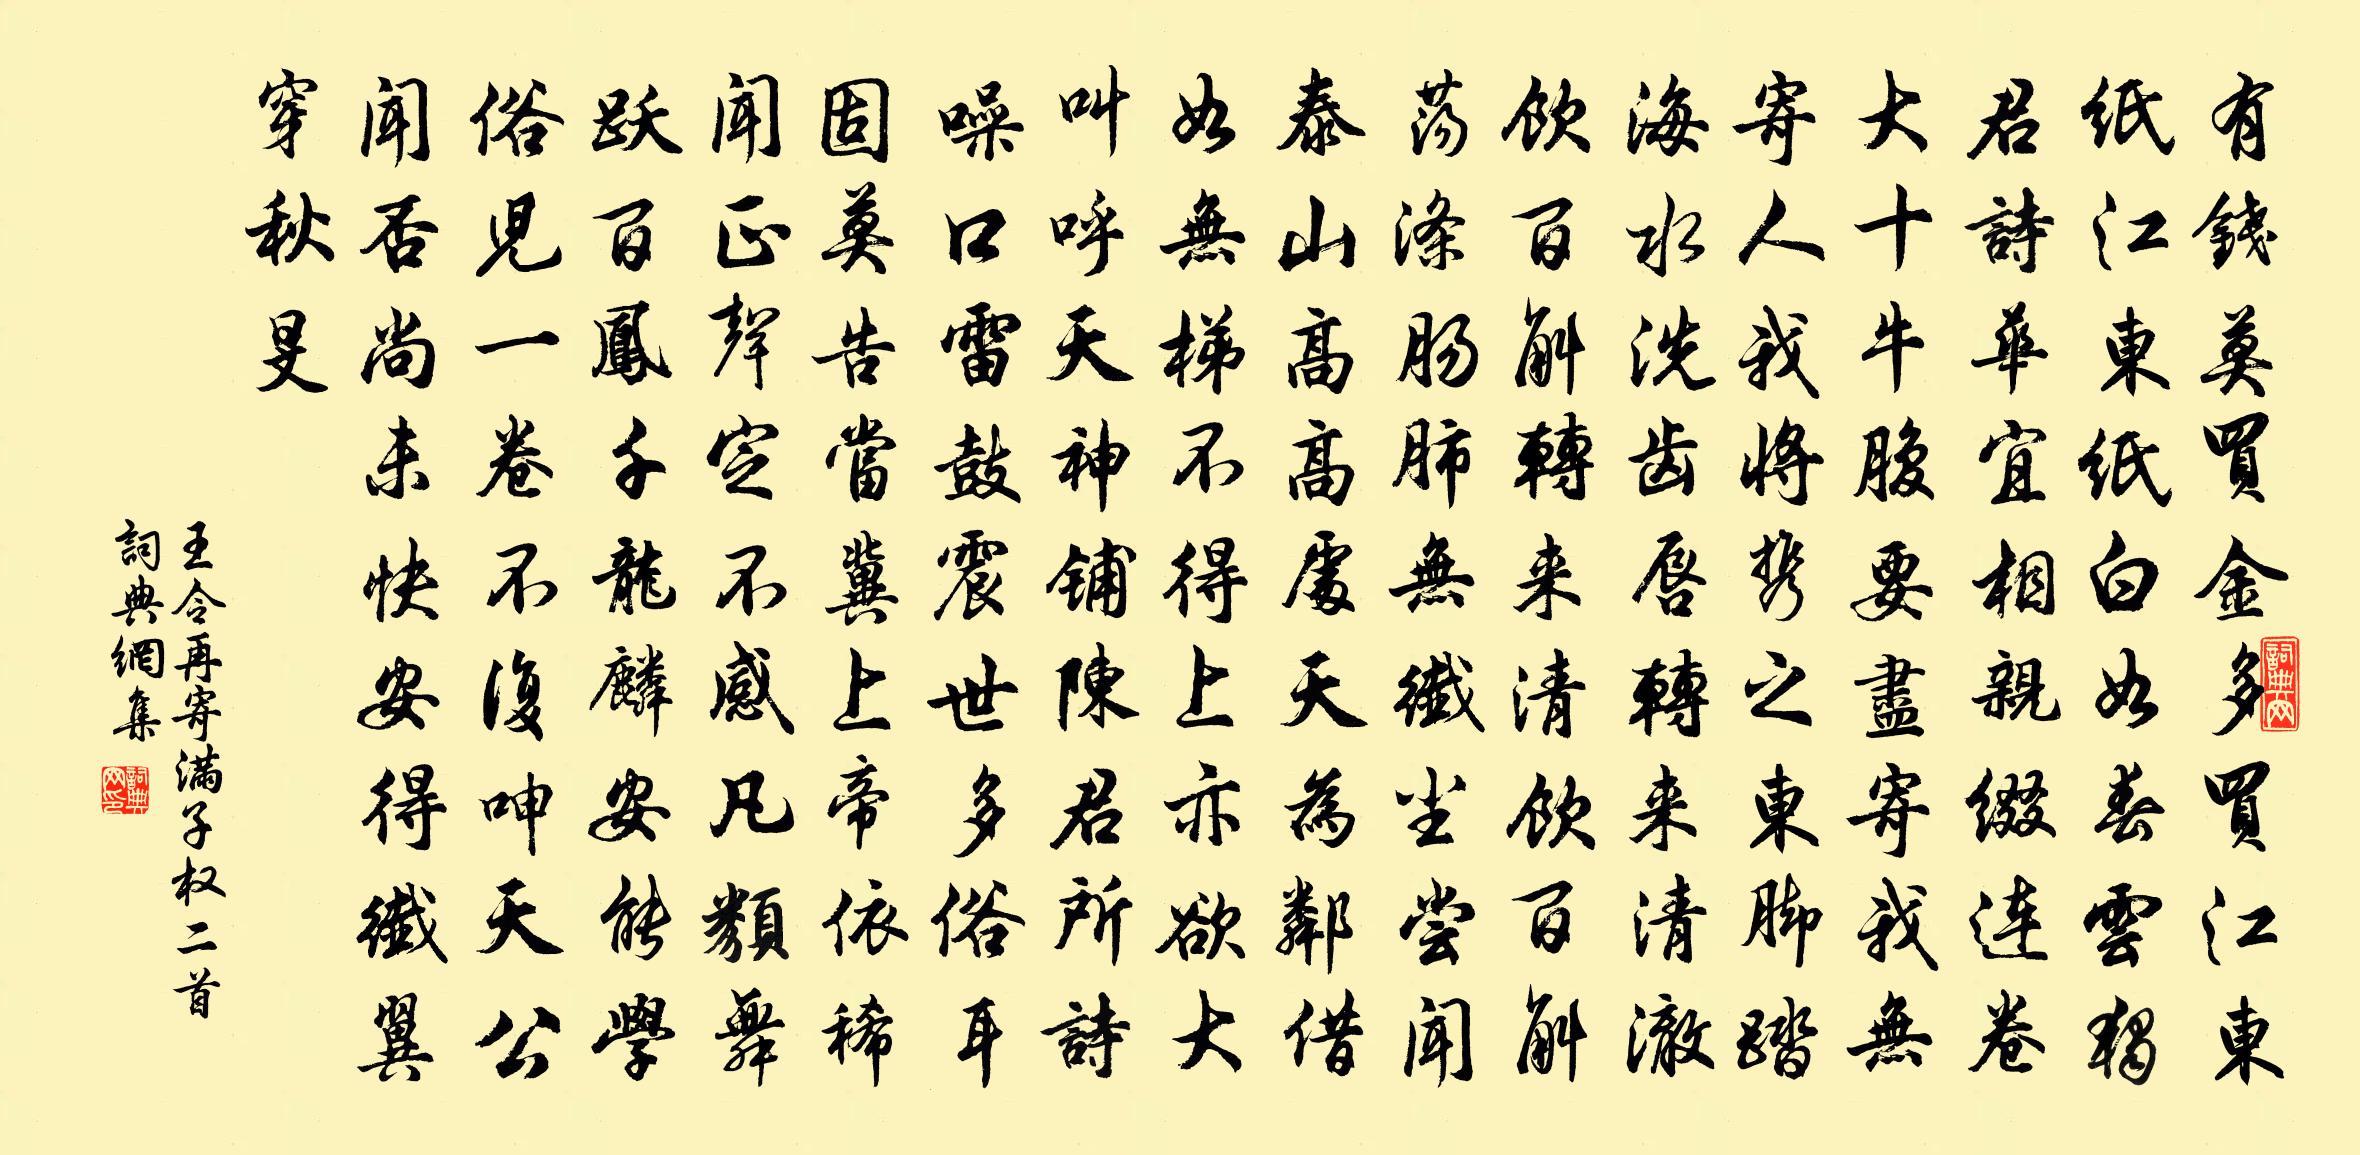 有錢莫買金多買江東
紙江東紙白如春雲獨
君詩華宜相親綴連卷
大十牛腹要盡寄我無
寄人我將携之東脚踏
海水洗齿唇轉来清澈
飲百斛轉来清飲百斛
荡滌肠肺無纖尘尝聞
泰山高高處天為鄰借
如無梯不得上亦欲大
叫呼天神铺陳君所詩
噪口雷鼓震世多俗耳
固莫告當冀上帝依稀
闻正聲定不感凡類舞
跃百鳳千龍麟安能學
俗児一卷不復呻天公
闻否尚未快安得纖翼
穿秋旻
王令再寄满子权二首
詞典網集
詞典网
詞典网印